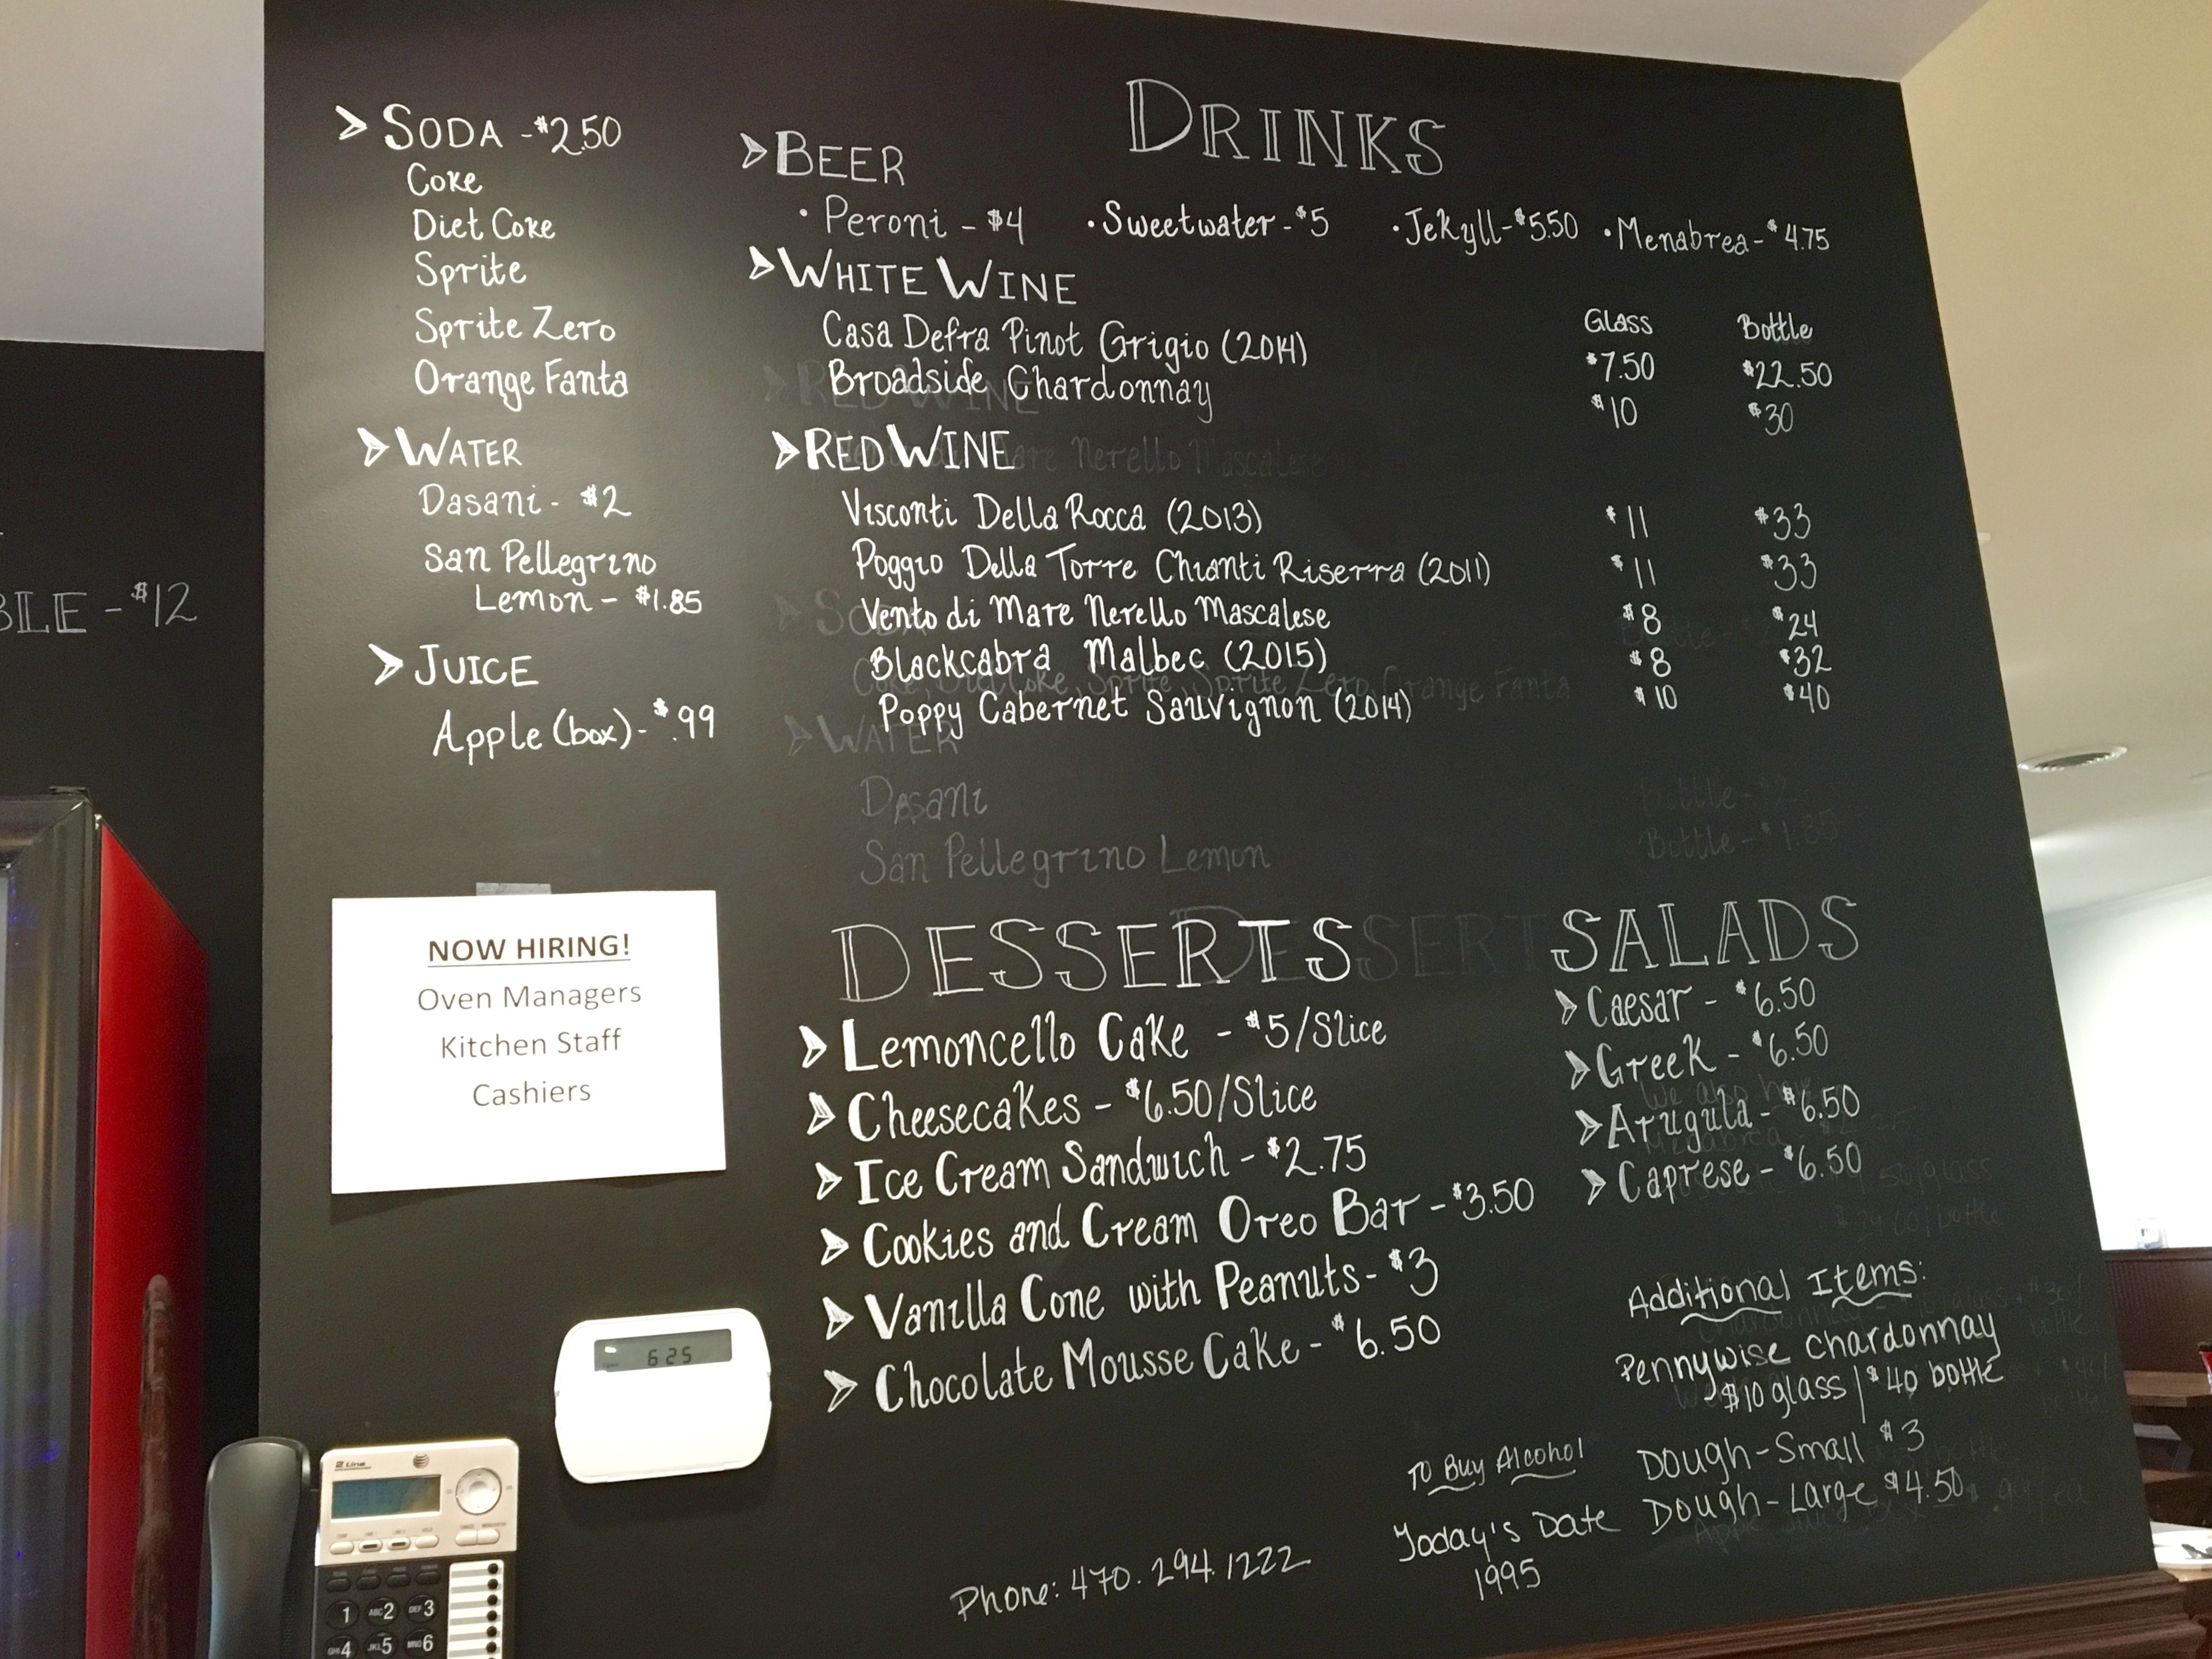 DRINKS
SODA - $2.50
Coke
Diet Coke
Sprite
Sprite Zero
Orange Fanta
WATER
Dasani - $2
San Pellegrino
Lemon - $1.85
JUICE
Apple (box) - $.99
BLE - $12
BEER
• Peroni - $4 • Sweetwater - $5 • Jekyll - $5.50 • Menabrea - $4.75
WHITE WINE
Glass Bottle
Casa Defra Pinot Grigio (2014) $7.50 $22.50
Broadside Chardonnay $10 $30
RED WINE
Visconti Della Rocca (2013) $11 $33
Poggio Della Torre Chianti Riserra (2011) $11 $33
Vento di Mare Nerello Mascalese $8 $24
Blackcabra Malbec (2015) $8 $32
Poppy Cabernet Sauvignon (2014) $10 $40
RED WINE
Mare Nerello Mascalese
SODA
Coke, Diet Coke, Sprite, Sprite Zero, Orange Fanta
WATER
Dasani Bottle - $2
San Pellegrino Lemon Bottle - $1.85
NOW HIRING!
Oven Managers
Kitchen Staff
Cashiers
DESSERTS
DESSERTS
Lemoncello Cake - $5/Slice
Cheesecakes - $6.50/Slice
Ice Cream Sandwich - $2.75
Cookies and Cream Oreo Bar - $3.50
Vanilla Cone with Peanuts - $3
Chocolate Mousse Cake - $6.50
SALADS
Caesar - $6.50
Greek - $6.50
We also have
Arugula - $6.50
Caprese - $6.50
Additional Items:
Pennywise Chardonnay
$10 glass | $40 bottle
Dough - Small $3
Dough - Large $4.50
To Buy Alcohol
Today's Date
1995
Phone: 470.294.1222
625
2 Line
1 ABC 2 DEF 3
GHI 4 JKL 5 MNO 6